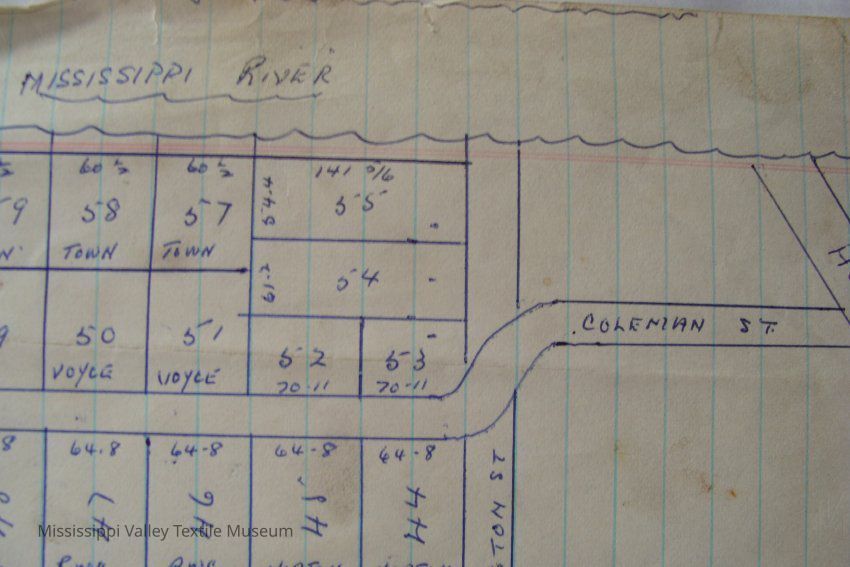 MISSISSIPPI RIVER
60 ⅔ 60 ⅔ 141 5/6
9 58 57 54.4 55
TOWN TOWN
61.2 54
9 50 51 52 53
VOYCE VOYCE 70-11 70-11
COLEMAN ST.
8 64.8 64-8 64-8 64-8
47 46 45 44
TON ST
Mississippi Valley Textile Museum